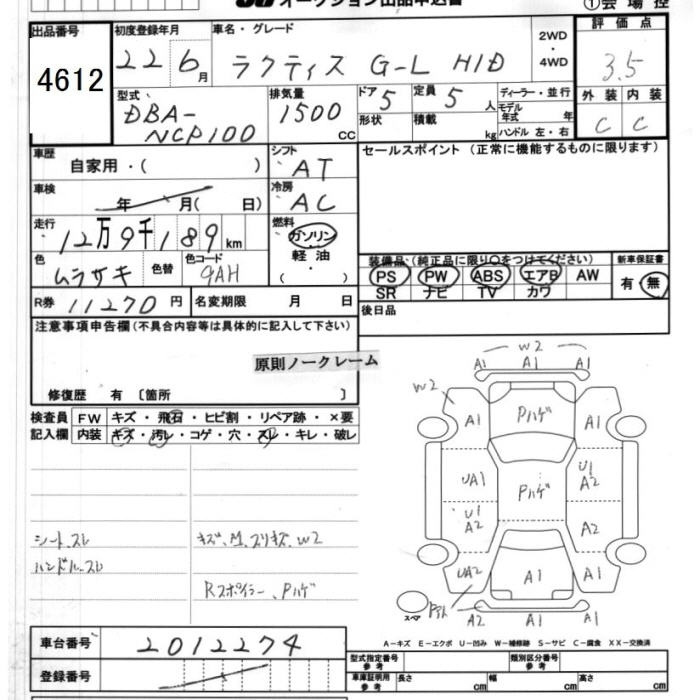 オークション出品申込書
①会場控
出品番号
4612
初度登録年月
22 6月
車名・グレード
ラクティス G-L HID
2WD
・
4WD
評価点
3.5
型式
DBA-
NCP100
排気量
1500
CC
ドア 5
形状
定員 5 人
積載 kg
ディーラー・並行
モデル
年式 年
ハンドル 左・右
外装 内装
C C
車歴
自家用・( )
シフト
AT
セールスポイント (正常に機能するものに限ります)
車検
年 月( 日)
冷房
AC
走行
12万9千189km
燃料
ガソリン
・
軽油
・
( )
色
ムラサキ
色替
色コード
9AH
装備品(純正品に限り○をつけてください)
新車保証書
PS PW ABS エアB AW
SR ナビ TV カワ
有・無
R券 11270円
名変期限 月 日
後日品
注意事項申告欄(不具合内容等は具体的に記入して下さい)
原則ノークレーム
修復歴 有〔箇所 〕
検査員
記入欄
FW キズ・飛石・ヒビ割・リペア跡・×要
内装 キズ・汚レ・コゲ・穴・スレ・キレ・破レ
シート、スレ
ハンドル、スレ
キズ、凹、スリキズ、W2
Rスポイラー、Pハゲ
W2
A1 A1 A1
W2
A1 Pハゲ A1
UA1 Pハゲ U1
A2
U1
A2 A2
UA2 A1 A1
スペア
A2 A1 A1
A-キズ E-エクボ U-凹み W-補修跡 S-サビ C-腐食 XX-交換済
車台番号
2012274
登録番号
型式指定番号
参考
類別区分番号
参考
車庫証明用
参考
長さ cm
幅 cm
高さ cm